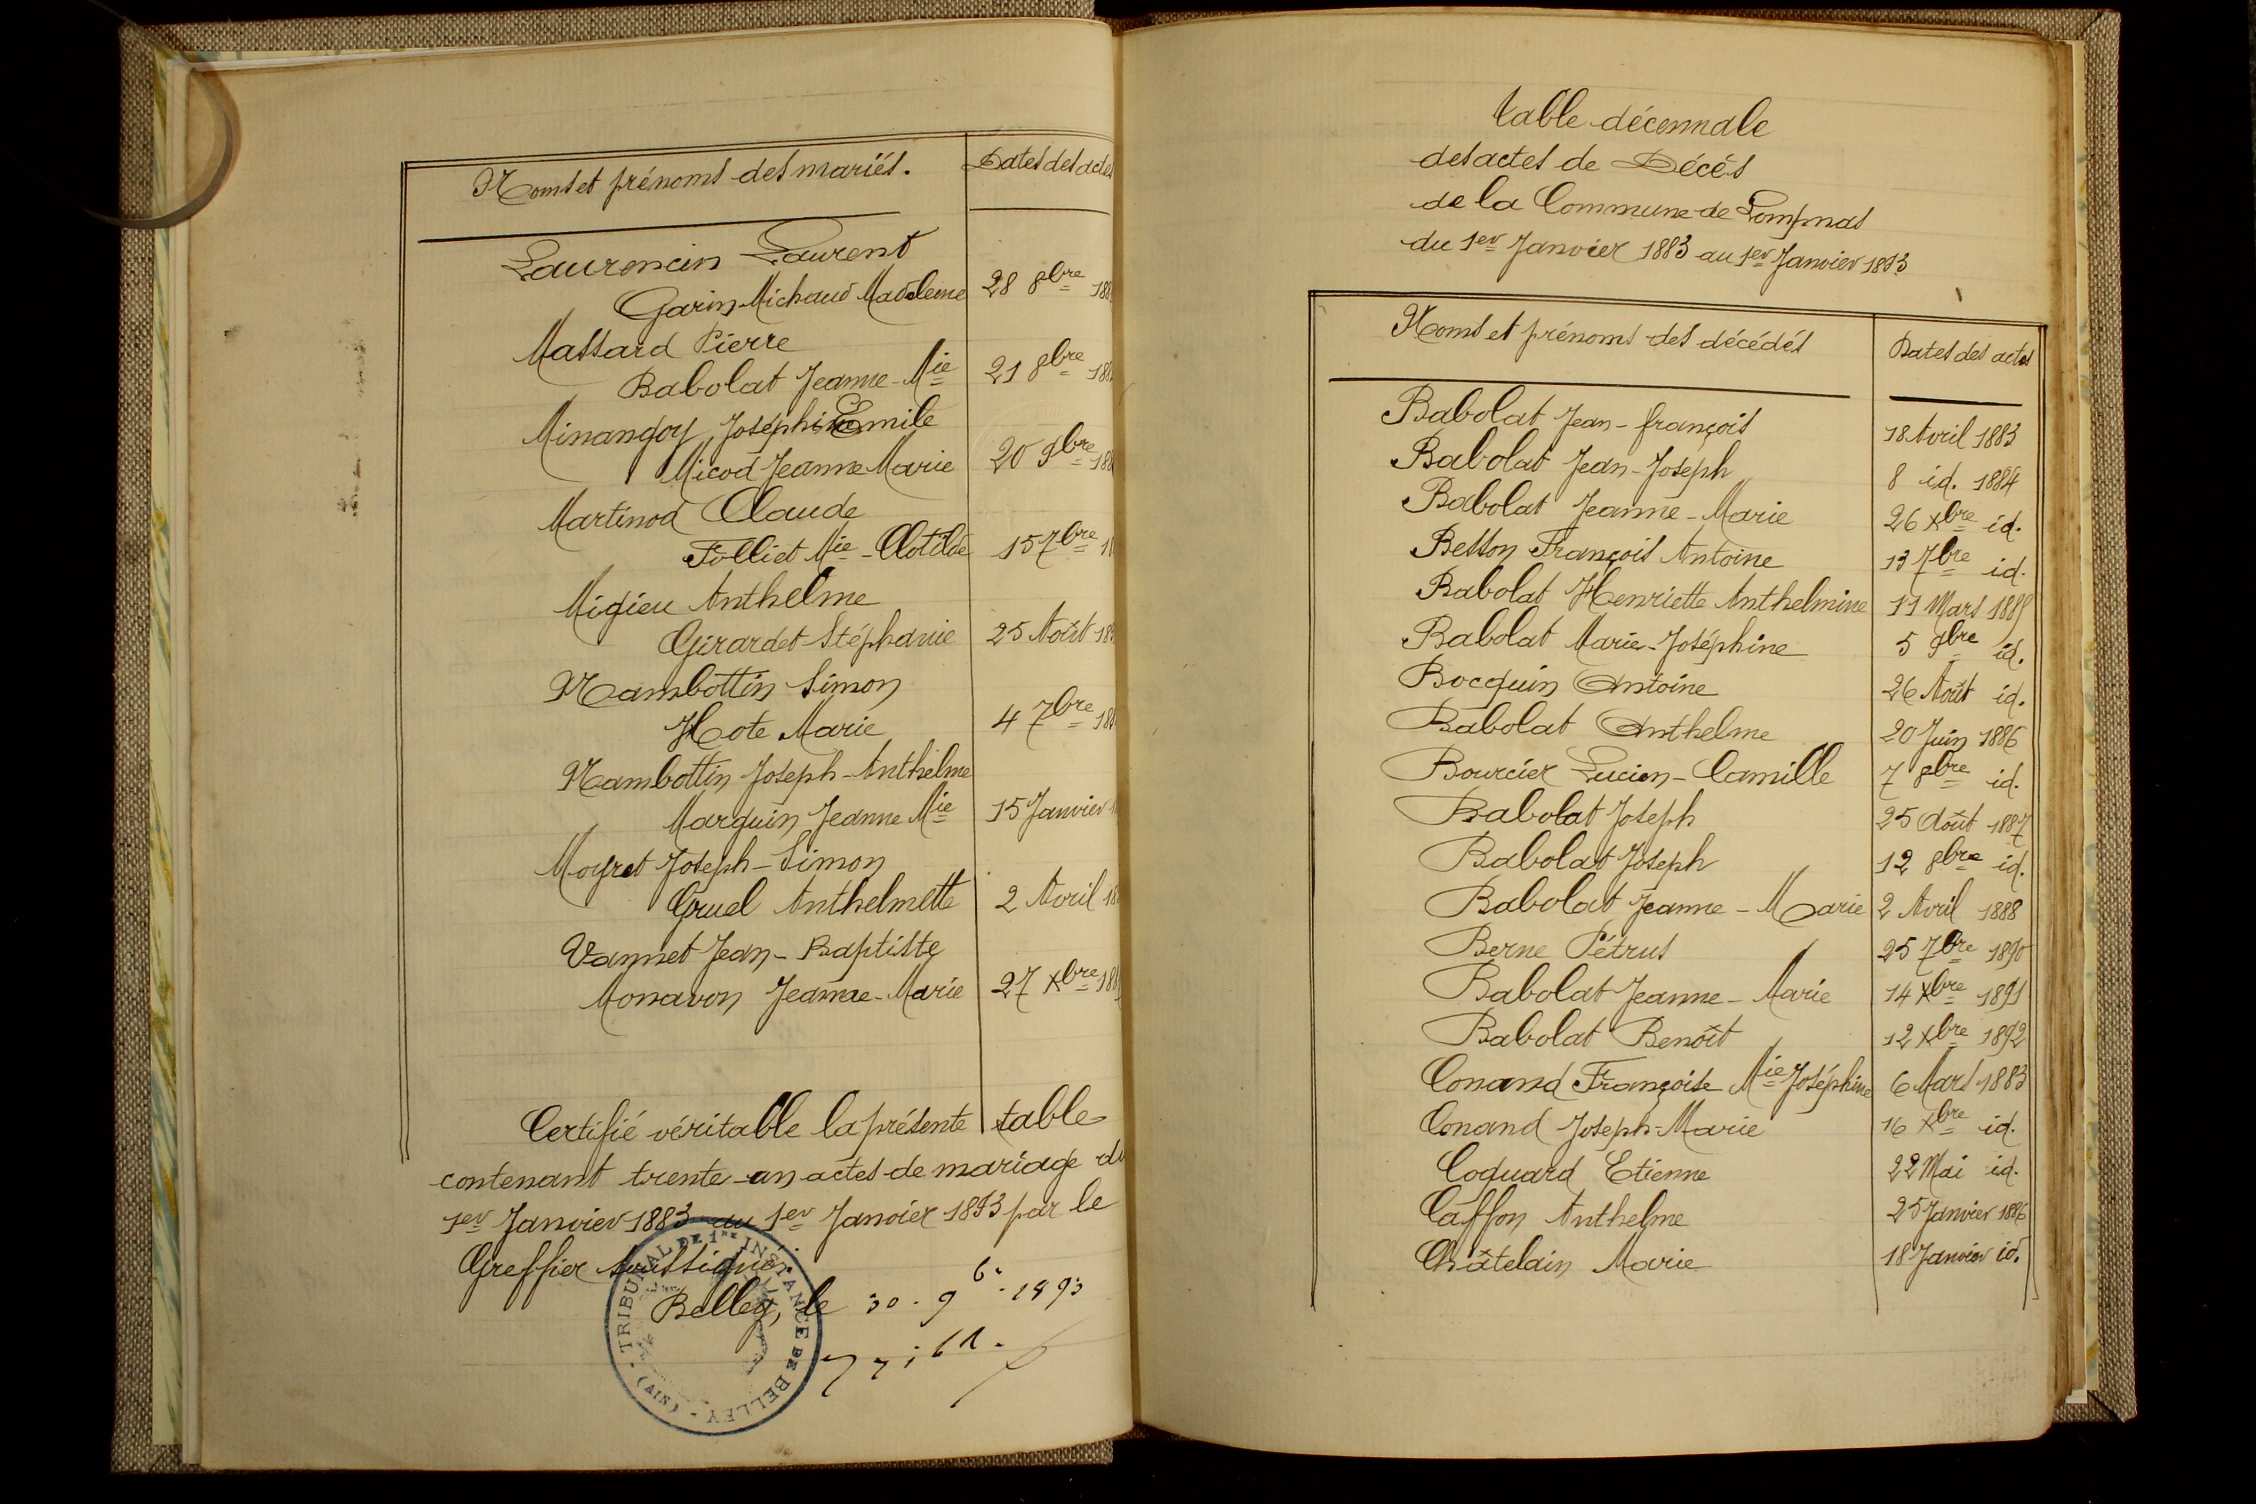 Noms et prénoms des mariés.
Dates des actes
Laurencin Laurent
Garin-Michaud Madeleine 28 8bre 188
Massard Pierre
Babolat Jeanne-Mie 21 8bre 188
Minangoy Joseph Emile
Micod Jeanne Marie 20 9bre 188
Martinod Claude
Folliet Mie-Clotilde 15 7bre 1
Migieu Anthelme
Girardet Stéphanie 25 Août 18
Nambottin Simon
Hote Marie 4 7bre 188
Nambottin Joseph-Anthelme
Marquin Jeanne Mie 15 Janvier
Moyret Joseph-Simon
Gruel Anthelmette 2 Avril 18
Vannet Jean-Baptiste
Monavon Jeanne-Marie 27 Xbre 188
Certifié véritable la présente table
contenant trente-un actes de mariage du
1er Janvier 1883 au 1er Janvier 1893 par le
Greffier soussigné.
Belley, le 30 - 9b. 1893
TRIBUNAL DE 1RE INSTANCE DE BELLEY - (AIN)
table décennale
des actes de Décès
de la Commune de Lompnas
du 1er Janvier 1883 au 1er Janvier 1893
Noms et prénoms des décédés
Dates des actes
Babolat Jean-françois 18 Avril 1883
Babolat Jean-Joseph 8 id. 1884
Babolat Jeanne-Marie 26 Xbre id.
Besson François Antoine 13 7bre id.
Babolat Henriette Anthelmine 11 Mars 1885
Babolat Marie-Joséphine 5 9bre id.
Bocquin Antoine 26 Août id.
Babolat Anthelme 20 Juin 1886
Bourcier Lucien-Camille 7 8bre id.
Babolat Joseph 25 Août 1887
Babolat Joseph 12 8bre id.
Babolat Jeanne-Marie 2 Avril 1888
Berne Pétrus 25 7bre 1890
Babolat Jeanne-Marie 14 Xbre 1891
Babolat Benoît 12 Xbre 1892
Conand Françoise Mie Joséphine 6 Mars 1883
Conand Joseph-Marie 16 Xbre id.
Coquard Etienne 22 Mai id.
Caffon Anthelme 25 Janvier 1886
Châtelain Marie 18 Janvier id.